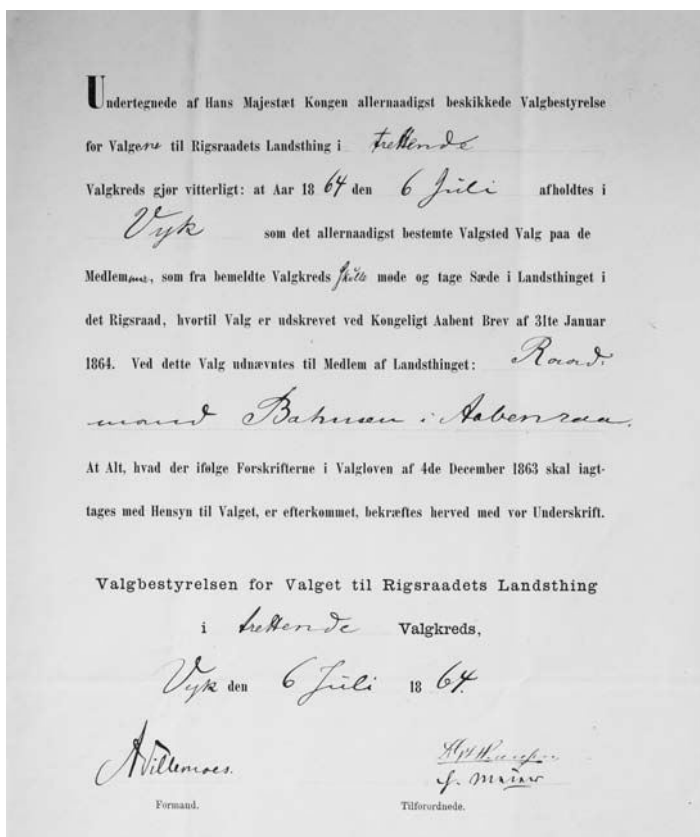 Undertegnede af Hans Majestæt Kongen allernaadigst beskikkede Valgbestyrelse
for Valgene til Rigsraadets Landsthing i trettende
Valgkreds gjør vitterligt: at Aar 1864 den 6 Juli afholdtes i
Vyk som det allernaadigst bestemte Valgsted Valg paa de
Medlemmer, som fra bemeldte Valgkreds skulle møde og tage Sæde i Landsthinget i
det Rigsraad, hvortil Valg er udskrevet ved Kongeligt Aabent Brev af 31te Januar
1864. Ved dette Valg udnævntes til Medlem af Landsthinget: Raad-
mand Bahnsen i Aabenraa.
At Alt, hvad der ifølge Forskrifterne i Valgloven af 4de December 1863 skal iagt-
tages med Hensyn til Valget, er efterkommet, bekræftes herved med vor Underskrift.
Valgbestyrelsen for Valget til Rigsraadets Landsthing
i trettende Valgkreds,
Vyk den 6 Juli 1864.
AVillemoes.
Formand. Tilforordnede.